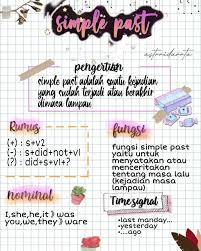 simple past
astridarota
pengertian
simple past adalah suatu kejadian
yang sudah terjadi atau berakhir
dimasa lampau
Rumus
(+) : s+v2
(-) : s+did+not+v1
(?) : did+s+v1+?
fungsi
fungsi simple past
yaitu untuk
menyatakan atau
menceritakan
tentang masa lalu
(kejadian masa
lampau)
nominal
I,she,he,it } was
you,we,they } ware
Time signal
•last manday...
•yesterday
•....ago